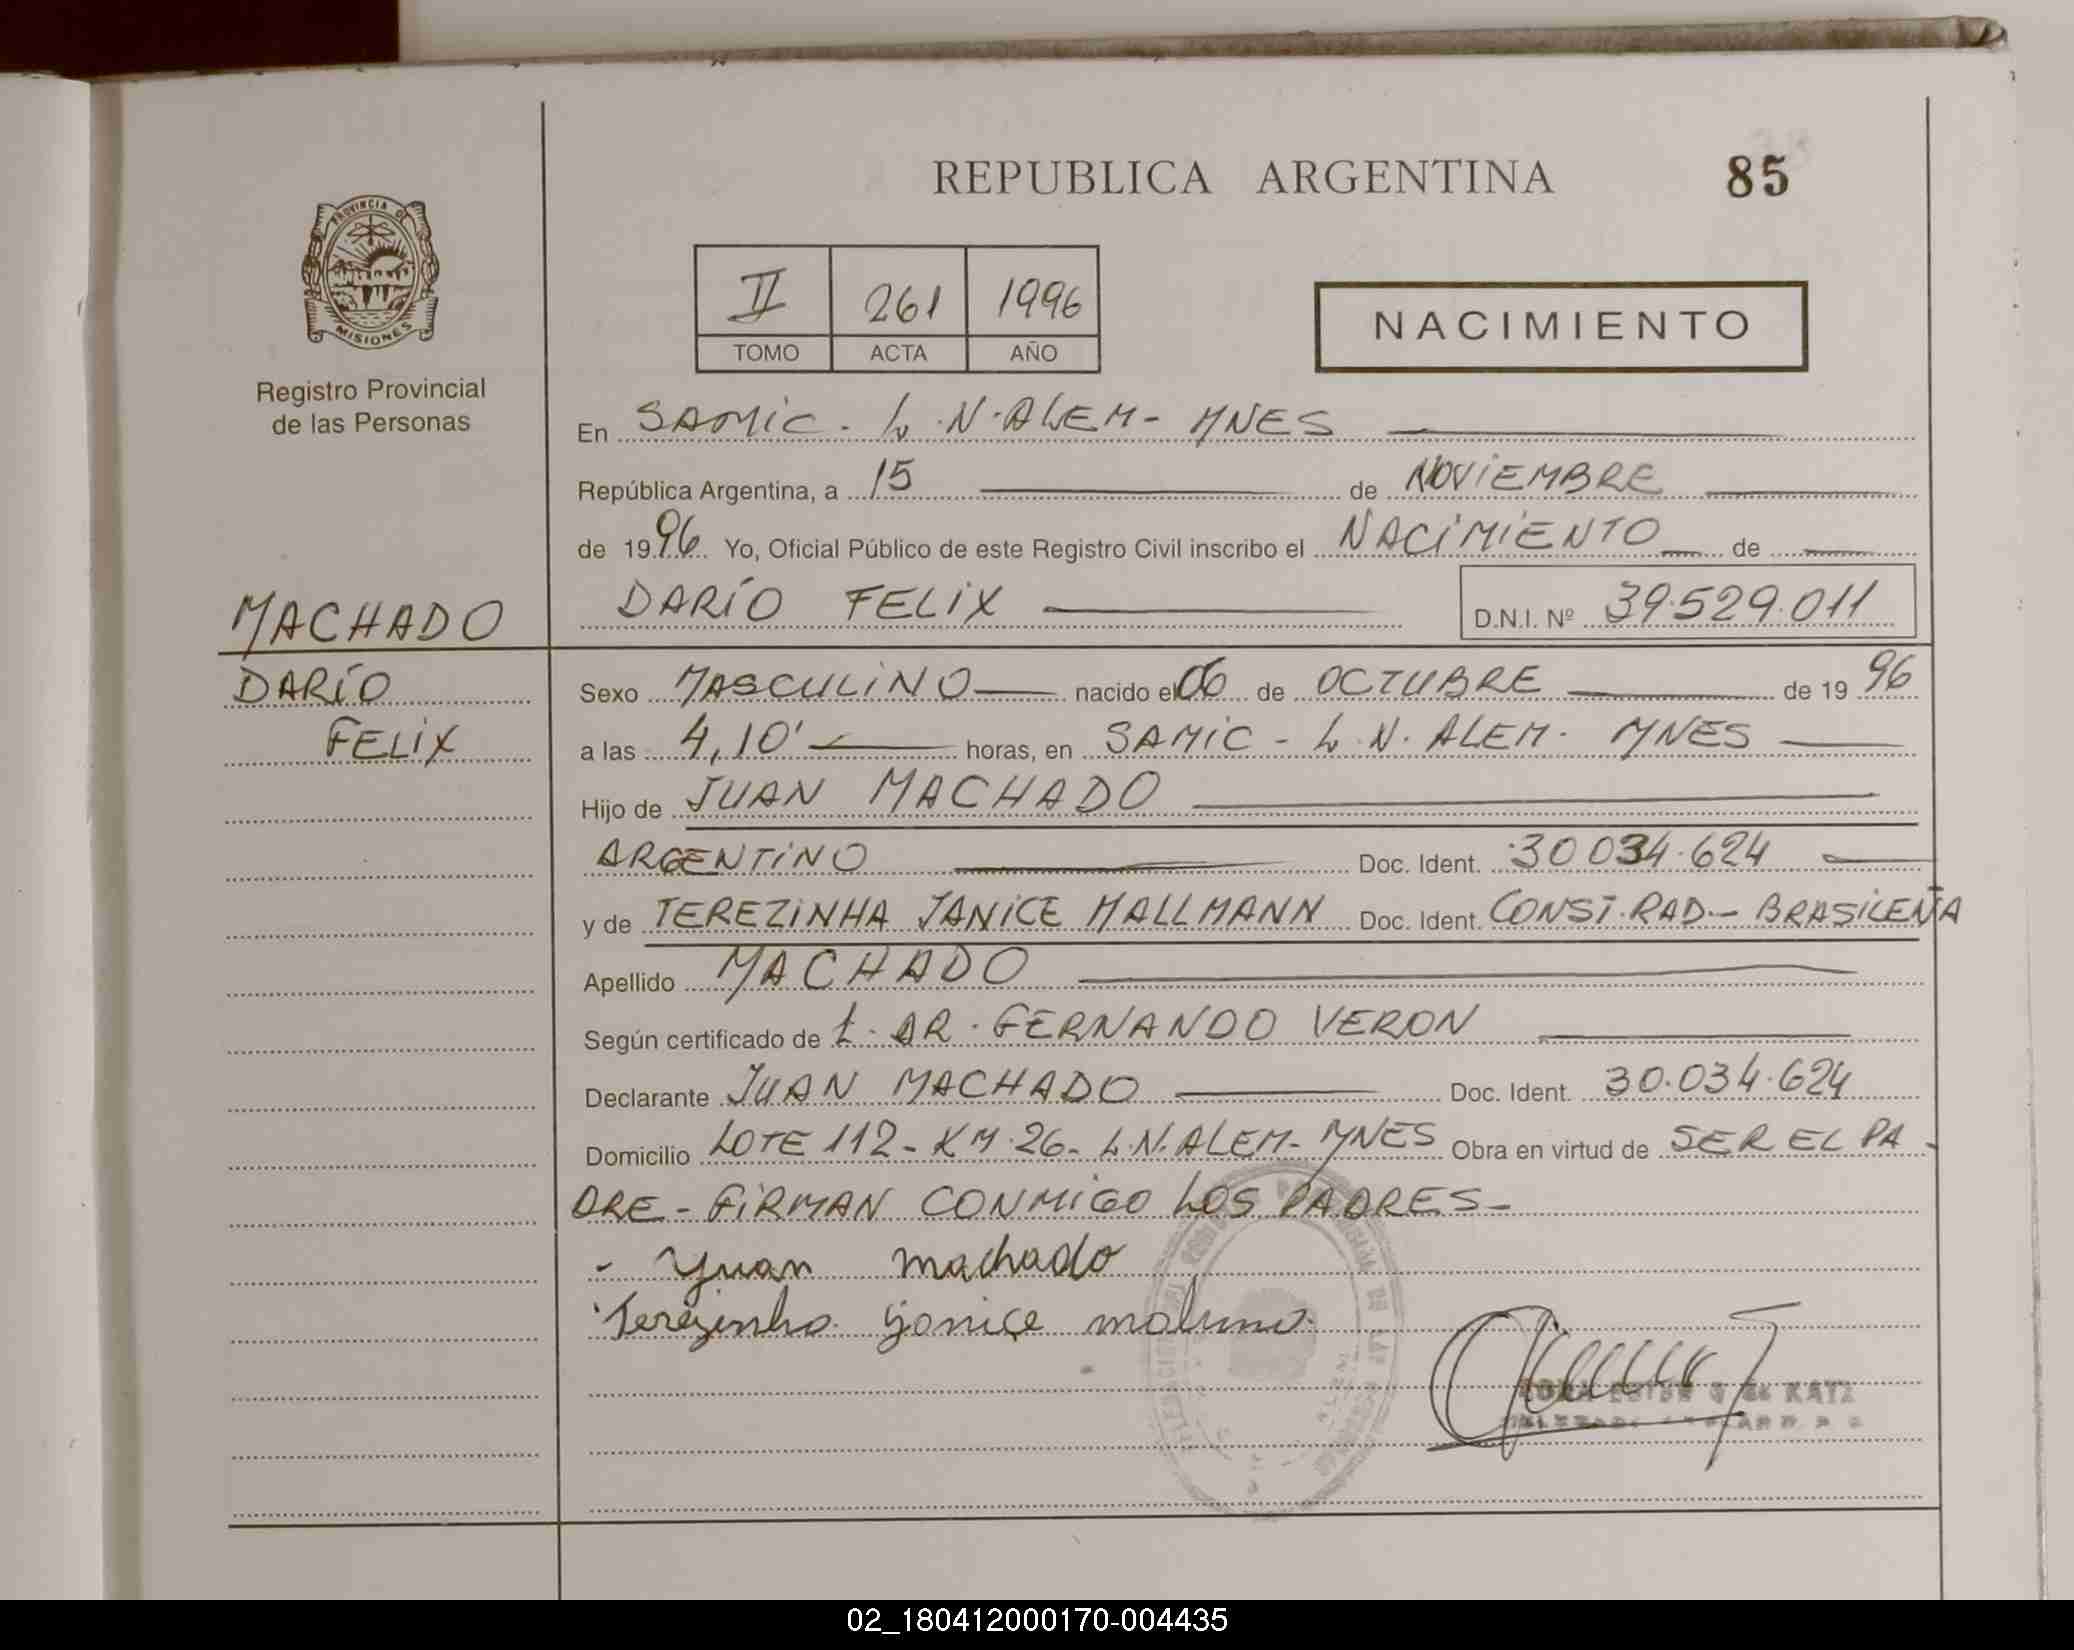 REPUBLICA ARGENTINA
85
PROVINCIA DE
MISIONES
Registro Provincial
de las Personas
II 261 1996
TOMO ACTA AÑO
NACIMIENTO
En SAMIC - L. N. ALEM - MNES
República Argentina, a 15 de NOVIEMBRE
de 1996 Yo, Oficial Público de este Registro Civil inscribo el NACIMIENTO de
MACHADO
DARÍO FELIX D.N.I. Nº 39.529.011
DARÍO
FELIX
Sexo MASCULINO nacido el 06 de OCTUBRE de 19 96
a las 4,10' horas, en SAMIC - L. N. ALEM - MNES
Hijo de JUAN MACHADO
ARGENTINO Doc. Ident. 30.034.624
y de TEREZINHA JANICE MALLMANN Doc. Ident. CONST. RAD. - BRASILEÑA
Apellido MACHADO
Según certificado de DR. FERNANDO VERON
Declarante JUAN MACHADO Doc. Ident. 30.034.624
Domicilio LOTE 112 - KM. 26 - L.N. ALEM - MNES Obra en virtud de SER EL PA-
DRE - FIRMAN CONMIGO LOS PADRES -
- Yuan machado
Terezinha
KATZ
02_180412000170-004435